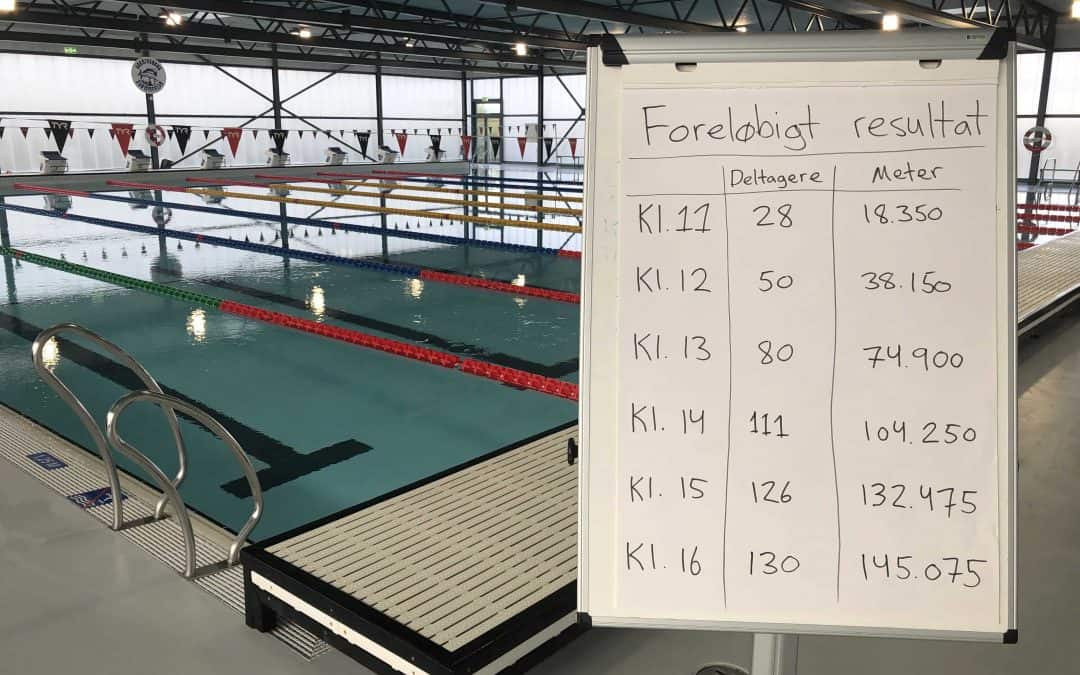 Foreløbigt resultat
Deltagere Meter
Kl.11 28 18.350
Kl.12 50 38.150
Kl. 13 80 74.900
Kl. 14 111 104.250
Kl. 15 126 132.475
Kl. 16 130 145.075